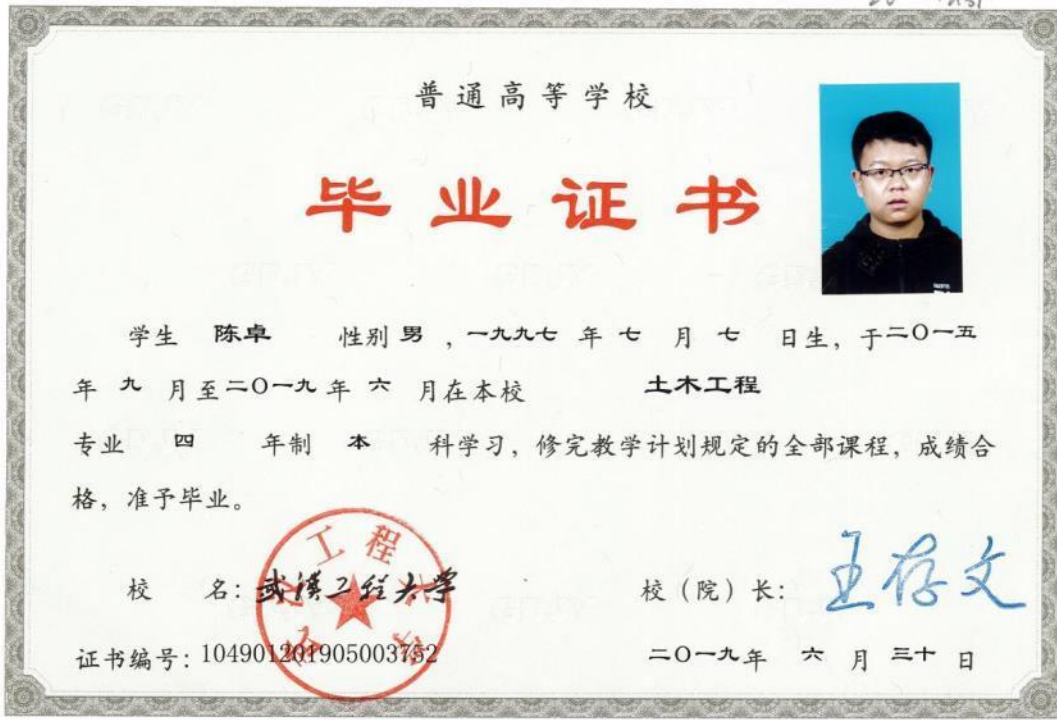 普通高等学校
毕业证书
学生 陈卓 性别 男 ，一九九七 年 七 月 七 日生，于二〇一五
年 九 月至二〇一九年 六 月在本校 土木工程
专业 四 年制 本 科学习，修完教学计划规定的全部课程，成绩合
格，准予毕业。
校 名：武汉工程大学 校（院）长：王存文
证书编号：104901201905003752 二〇一九年 六 月 三十 日